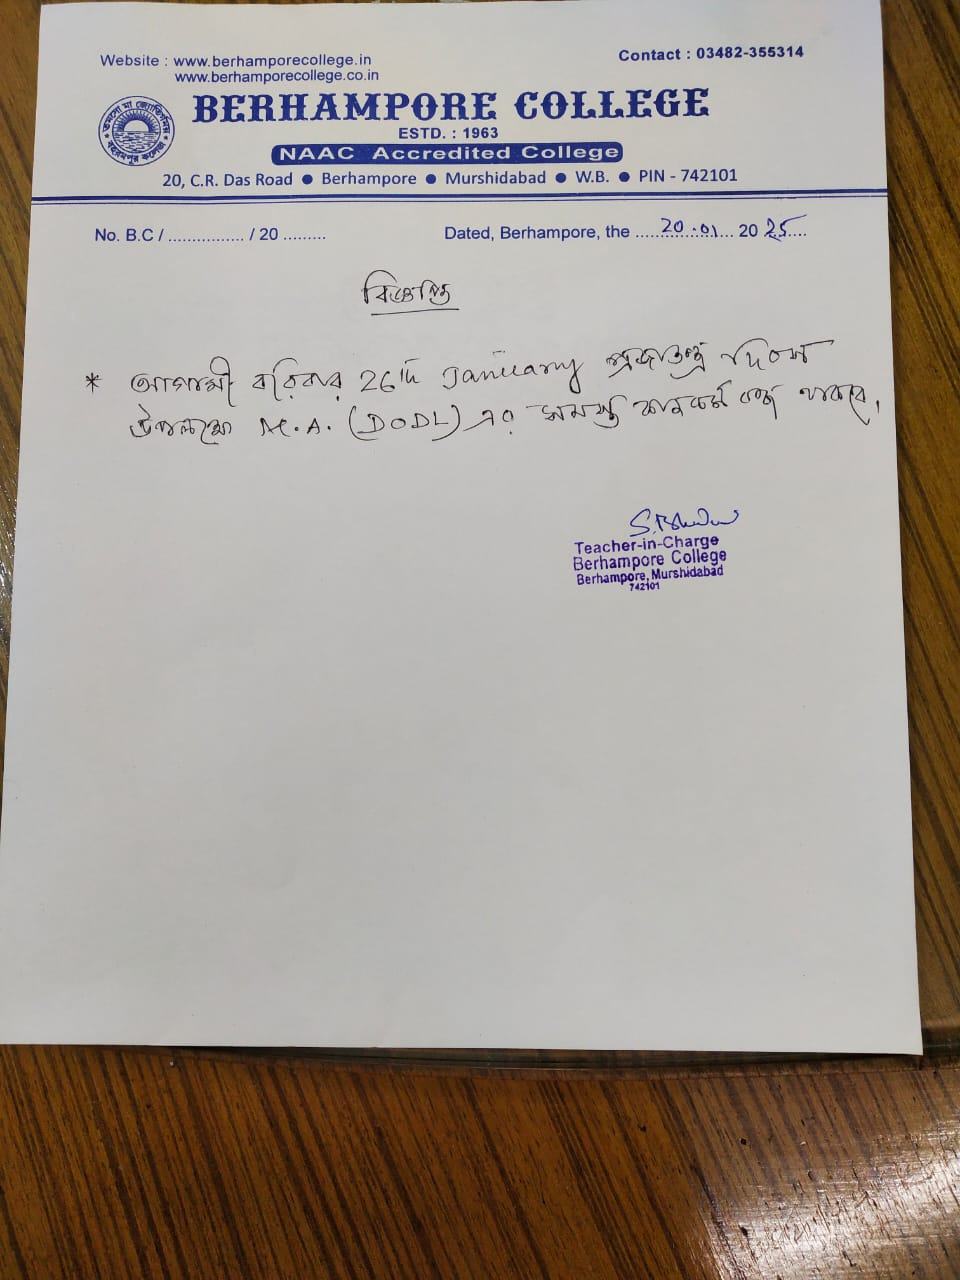 Website : www.berhamporecollege.in
Contact : 03482-355314
www.berhamporecollege.co.in
তমসো মা জ্যোতির্গময়
বহরমপুর কলেজ
BERHAMPORE COLLEGE
ESTD. : 1963
NAAC Accredited College
20, C.R. Das Road ● Berhampore ● Murshidabad ● W.B. ● PIN - 742101
No. B.C / ................ / 20 .........
Dated, Berhampore, the ......20.01.... 20 25....
বিজ্ঞপ্তি
* আগামী রবিবার 26th January প্রজাতন্ত্র দিবস
উপলক্ষে M.A. (DODL) এর সমস্ত বন্ধ থাকবে,
Teacher-in-Charge
Berhampore College
Berhampore, Murshidabad
742101